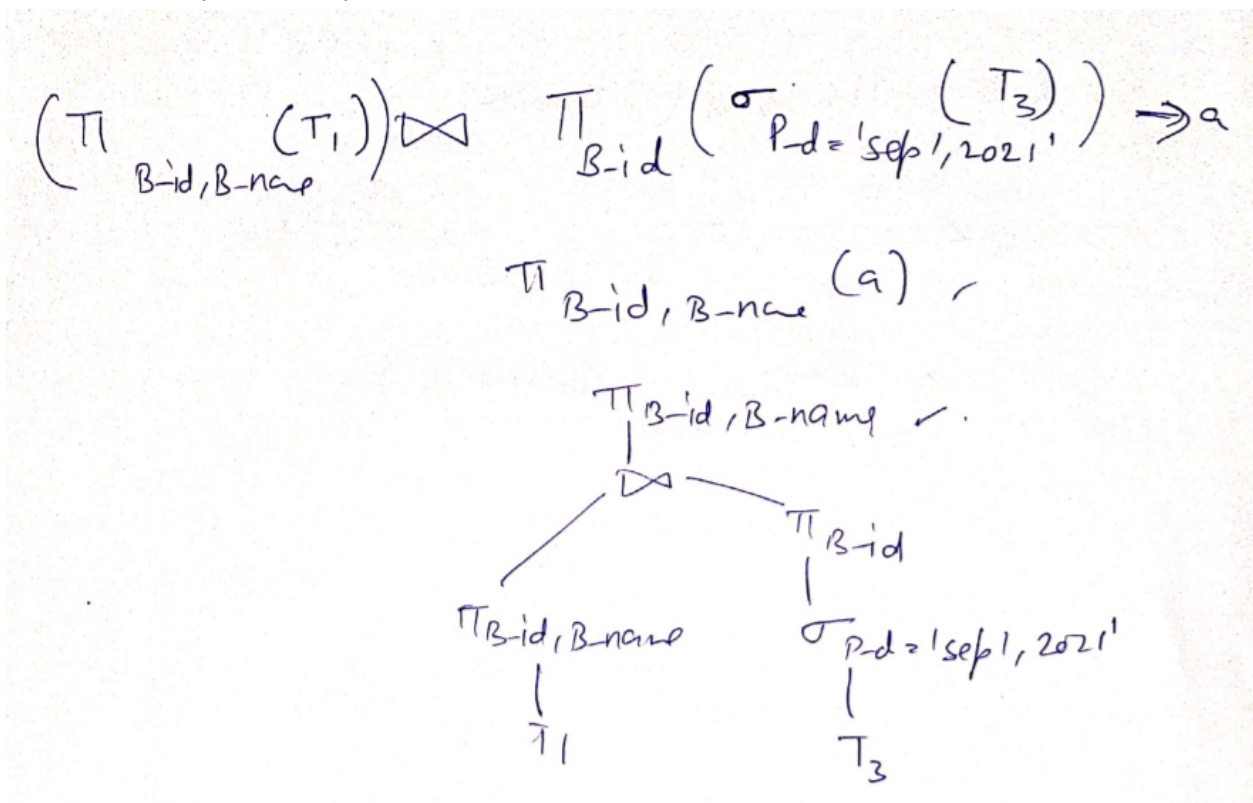 (Π B-id, B-name (T1)) ⋈ Π B-id (σ P-d = 'sep 1, 2021' (T3)) ⇒ a
Π B-id, B-name (a)
Π B-id, B-name
⋈
Π B-id
Π B-id, B-name σ P-d = 'sep 1, 2021'
T1 T3